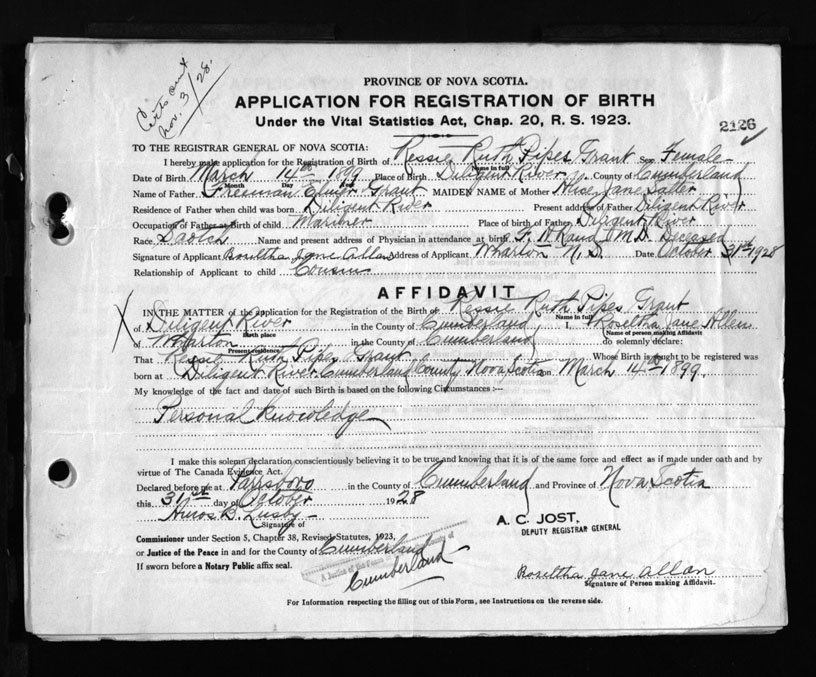 Certs out
Nov. 3/28.
PROVINCE OF NOVA SCOTIA.
APPLICATION FOR REGISTRATION OF BIRTH
Under the Vital Statistics Act, Chap. 20, R. S. 1923.
2126
TO THE REGISTRAR GENERAL OF NOVA SCOTIA:
I hereby make application for the Registration of Birth of Ressie Ruth Pipes Grant Sex Female
Name in full
Date of Birth March 14th 1899 Place of Birth Diligent River County of Cumberland
Month Day Year
Name of Father Freeman Grant MAIDEN NAME of Mother Alice Jane Salter
Residence of Father when child was born Diligent River Present address of Father Diligent River
Occupation of Father at Birth of child Mariner Place of birth of Father Diligent River
Race Scotch Name and present address of Physician in attendance at birth M.D. Deceased
Signature of Applicant Roseltha Jane Allan Address of Applicant Wharton N.S. Date October 31st 1928
Relationship of Applicant to child Cousin
AFFIDAVIT
IN THE MATTER of the application for the Registration of the Birth of Ressie Ruth Pipes Grant
Name in full
X of Diligent River in the County of Cumberland I, Roseltha Jane Allen
Birth place Name of person making Affidavit
of Wharton in the County of Cumberland do solemnly declare:
Present residence
That Ressie Ruth Pipes Grant Whose Birth is sought to be registered was
born at Diligent River Cumberland County Nova Scotia on March 14th 1899.
My knowledge of the fact and date of such Birth is based on the following Circumstances :—
Personal Knowledge
I make this solemn declaration conscientiously believing it to be true and knowing that it is of the same force and effect as if made under oath and by
virtue of The Canada Evidence Act.
Declared before me at Parrsboro in the County of Cumberland and Province of Nova Scotia
this 31st day of October 1928
Amos B. Lusby
Signature of
A. C. JOST,
DEPUTY REGISTRAR GENERAL
Commissioner under Section 5, Chapter 38, Revised Statutes, 1923,
or Justice of the Peace in and for the County of Cumberland
A Justice of the Peace
Cumberland
If sworn before a Notary Public affix seal.
Roseltha Jane Allan
Signature of Person making Affidavit.
For Information respecting the filling out of this Form, see Instructions on the reverse side.